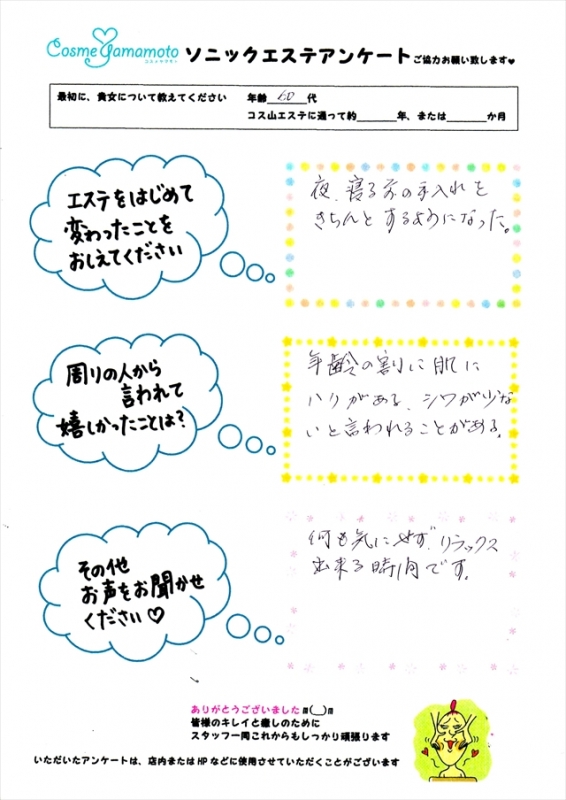 Cosme Yamamoto
コスメヤマモト
ソニックエステアンケート ご協力お願い致します♥
最初に、貴女について教えてください 年齢 60 代
コス山エステに通って約 年、または か月
エステをはじめて
変わったことを
おしえてください
夜、寝る前の手入れを
きちんとするようになった。
周りの人から
言われて
嬉しかったことは?
年齢の割に肌に
ハリがある、シワが少な
いと言われることがある。
その他
お声をお聞かせ
ください♡
何も気にせず、リラックス
出来る時間です。
ありがとうございましたm(__)m
皆様のキレイと癒しのために
スタッフ一同これからもしっかり頑張ります
いただいたアンケートは、店内またはHPなどに使用させていただくことがございます